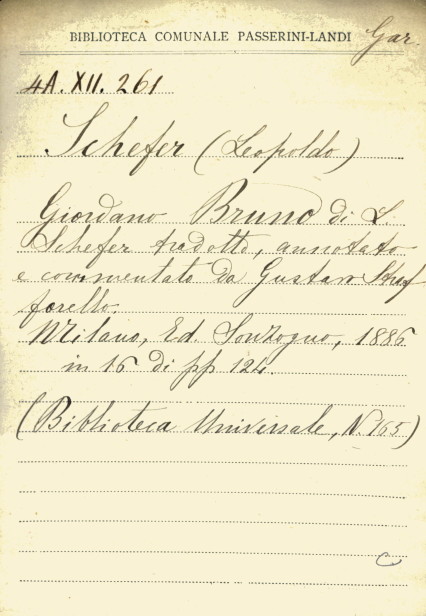 BIBLIOTECA COMUNALE PASSERINI-LANDI Gar.
4A. XII. 261
Schefer (Leopoldo)
Giordano Bruno di L.
Schefer tradotto, annotato
e commentato da Gustavo Straf
forello.
Milano, Ed. Sonzogno, 1886
in 16 di pp 124.
(Biblioteca Universale, N. 165)
C